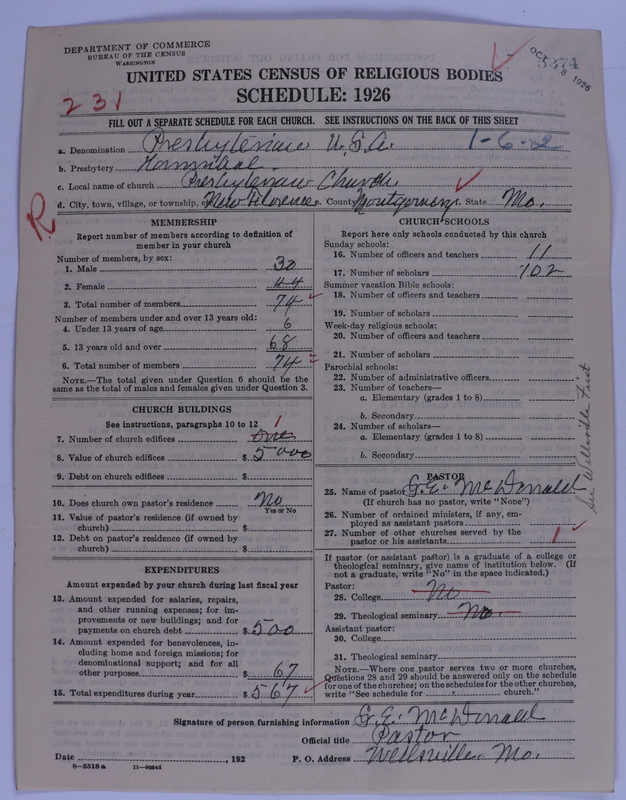 DEPARTMENT OF COMMERCE
BUREAU OF THE CENSUS
WASHINGTON
OCT 8 1926
UNITED STATES CENSUS OF RELIGIOUS BODIES
SCHEDULE: 1926
231
FILL OUT A SEPARATE SCHEDULE FOR EACH CHURCH. SEE INSTRUCTIONS ON THE BACK OF THIS SHEET
a. Denomination Presbyterian U.S.A. 1-6-02
b. Presbytery Hannibal
c. Local name of church Presbyterian Church
d. City, town, village, or township, New Florence County Montgomery State Mo.
R
MEMBERSHIP
Report number of members according to definition of
member in your church
Number of members, by sex:
1. Male 30
2. Female 44
3. Total number of members 74
Number of members under and over 13 years old:
4. Under 13 years of age 6
5. 13 years old and over 68
6. Total number of members 74
NOTE.—The total given under Question 6 should be the
same as the total of males and females given under Question 3.
CHURCH BUILDINGS
See instructions, paragraphs 10 to 12
7. Number of church edifices one 1
8. Value of church edifices $ 5000
9. Debt on church edifices $
10. Does church own pastor's residence No
Yes or No
11. Value of pastor's residence (if owned by
church) $
12. Debt on pastor's residence (if owned by
church) $
EXPENDITURES
Amount expended by your church during last fiscal year
13. Amount expended for salaries, repairs,
and other running expenses; for im-
provements or new buildings; and for
payments on church debt $ 500
14. Amount expended for benevolences, in-
cluding home and foreign missions; for
denominational support; and for all
other purposes $ 67
15. Total expenditures during year $ 567
CHURCH SCHOOLS
Report here only schools conducted by this church
Sunday schools:
16. Number of officers and teachers 11
17. Number of scholars 102
Summer vacation Bible schools:
18. Number of officers and teachers
19. Number of scholars
Week-day religious schools:
20. Number of officers and teachers
21. Number of scholars
Parochial schools:
22. Number of administrative officers
23. Number of teachers—
a. Elementary (grades 1 to 8)
b. Secondary
24. Number of scholars—
a. Elementary (grades 1 to 8)
b. Secondary
See Wellsville First
PASTOR
25. Name of pastor G. E. McDonald
(If church has no pastor, write "None")
26. Number of ordained ministers, if any, em-
ployed as assistant pastors
27. Number of other churches served by the
pastor or his assistants 1
If pastor (or assistant pastor) is a graduate of a college or
theological seminary, give name of institution below. (If
not a graduate, write "No" in the space indicated.)
Pastor:
28. College No
29. Theological seminary No.
Assistant pastor:
30. College
31. Theological seminary
NOTE.—Where one pastor serves two or more churches,
Questions 28 and 29 should be answered only on the schedule
for one of the churches; on the schedules for the other churches,
write "See schedule for church."
Signature of person furnishing information G. E. McDonald
Official title Pastor
Date , 192 P. O. Address Wellsville Mo.
8—5518a 11—9204d